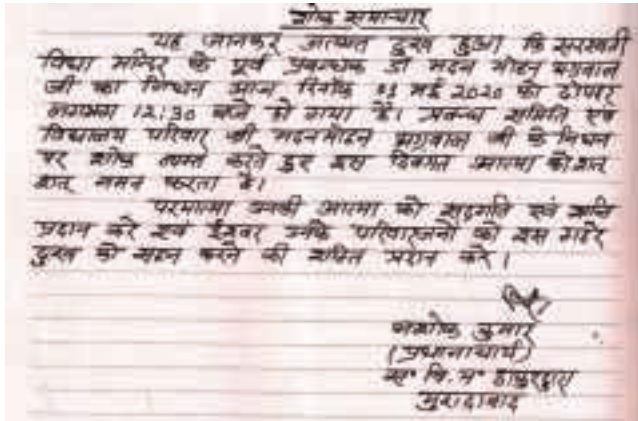 शोक समाचार
यह जानकर अत्यंत दुख हुआ कि सरस्वती
विद्या मन्दिर के पूर्व प्रबन्धक डॉ मदन मोहन अग्रवाल
जी का निधन आज दिनाँक मई 2020 को दोपहर
लगभग 12:30 बजे हो गया है। प्रबन्ध समिति एवं
विद्यालय परिवार श्री मदनमोहन अग्रवाल जी के निधन
पर शोक व्यक्त करते हुए इस दिवंगत आत्मा को शत्
शत् नमन करता है।
परमात्मा उनकी आत्मा को सद्गति एवं शान्ति
प्रदान करे एवं ईश्वर उनके परिवारजनों को इस गहरे
दुख को सहन करने की शक्ति प्रदान करे।
अशोक कुमार
(प्रधानाचार्य)
स० वि. म० ठाकुरद्वारा
मुरादाबाद